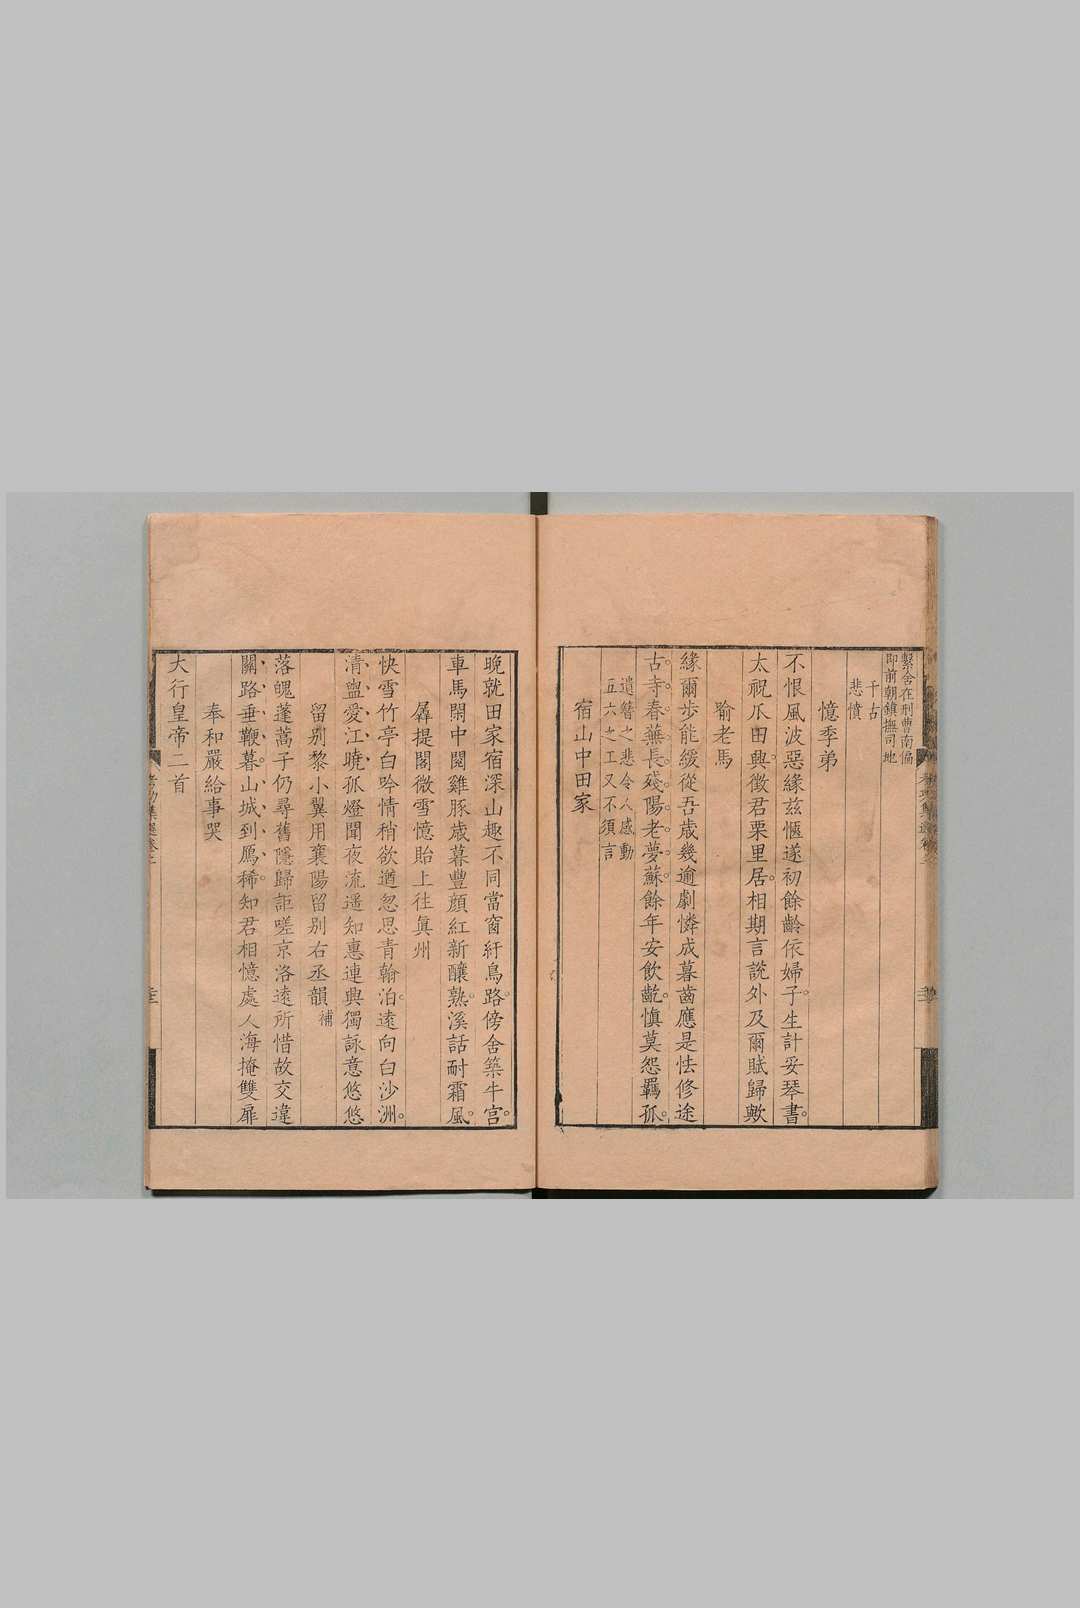 繫舍在刑曹南偏
即前朝鎮撫司地
千古
悲憤
憶季弟
不恨風波惡緣兹愜遂初餘齡依婦子生計妥琴書
太祝爪田興徵君栗里居相期言說外及爾賦歸歟
喻老馬
緣爾步能緩從吾歲幾逾劇憐成暮齒應是怯修途
古寺春蕪長殘陽老夢蘇餘年安飲齕愼莫怨羈孤
遺簪之悲令人感動
五六之工又不須言
宿山中田家
晚就田家宿深山趣不同當窗紆鳥路傍舍築牛宫
車馬閑中閱雞豚歲暮豐顏紅新釀熟溪話耐霜風
㝷提閣微雪憶貽上往眞州
快雪竹亭白吟情稍欲遒忽思青翰泊遠向白沙洲
清㿽愛江曉孤燈聞夜流遥知惠連興獨詠意悠悠
留别黎小翼用襄陽留别右丞韻 補
落魄蓬蒿子仍尋舊隱歸詎嗟京洛遠所惜故交違
關路垂鞭暮山城到鴈稀知君相憶處人海掩雙扉
奉和嚴給事哭
大行皇帝二首